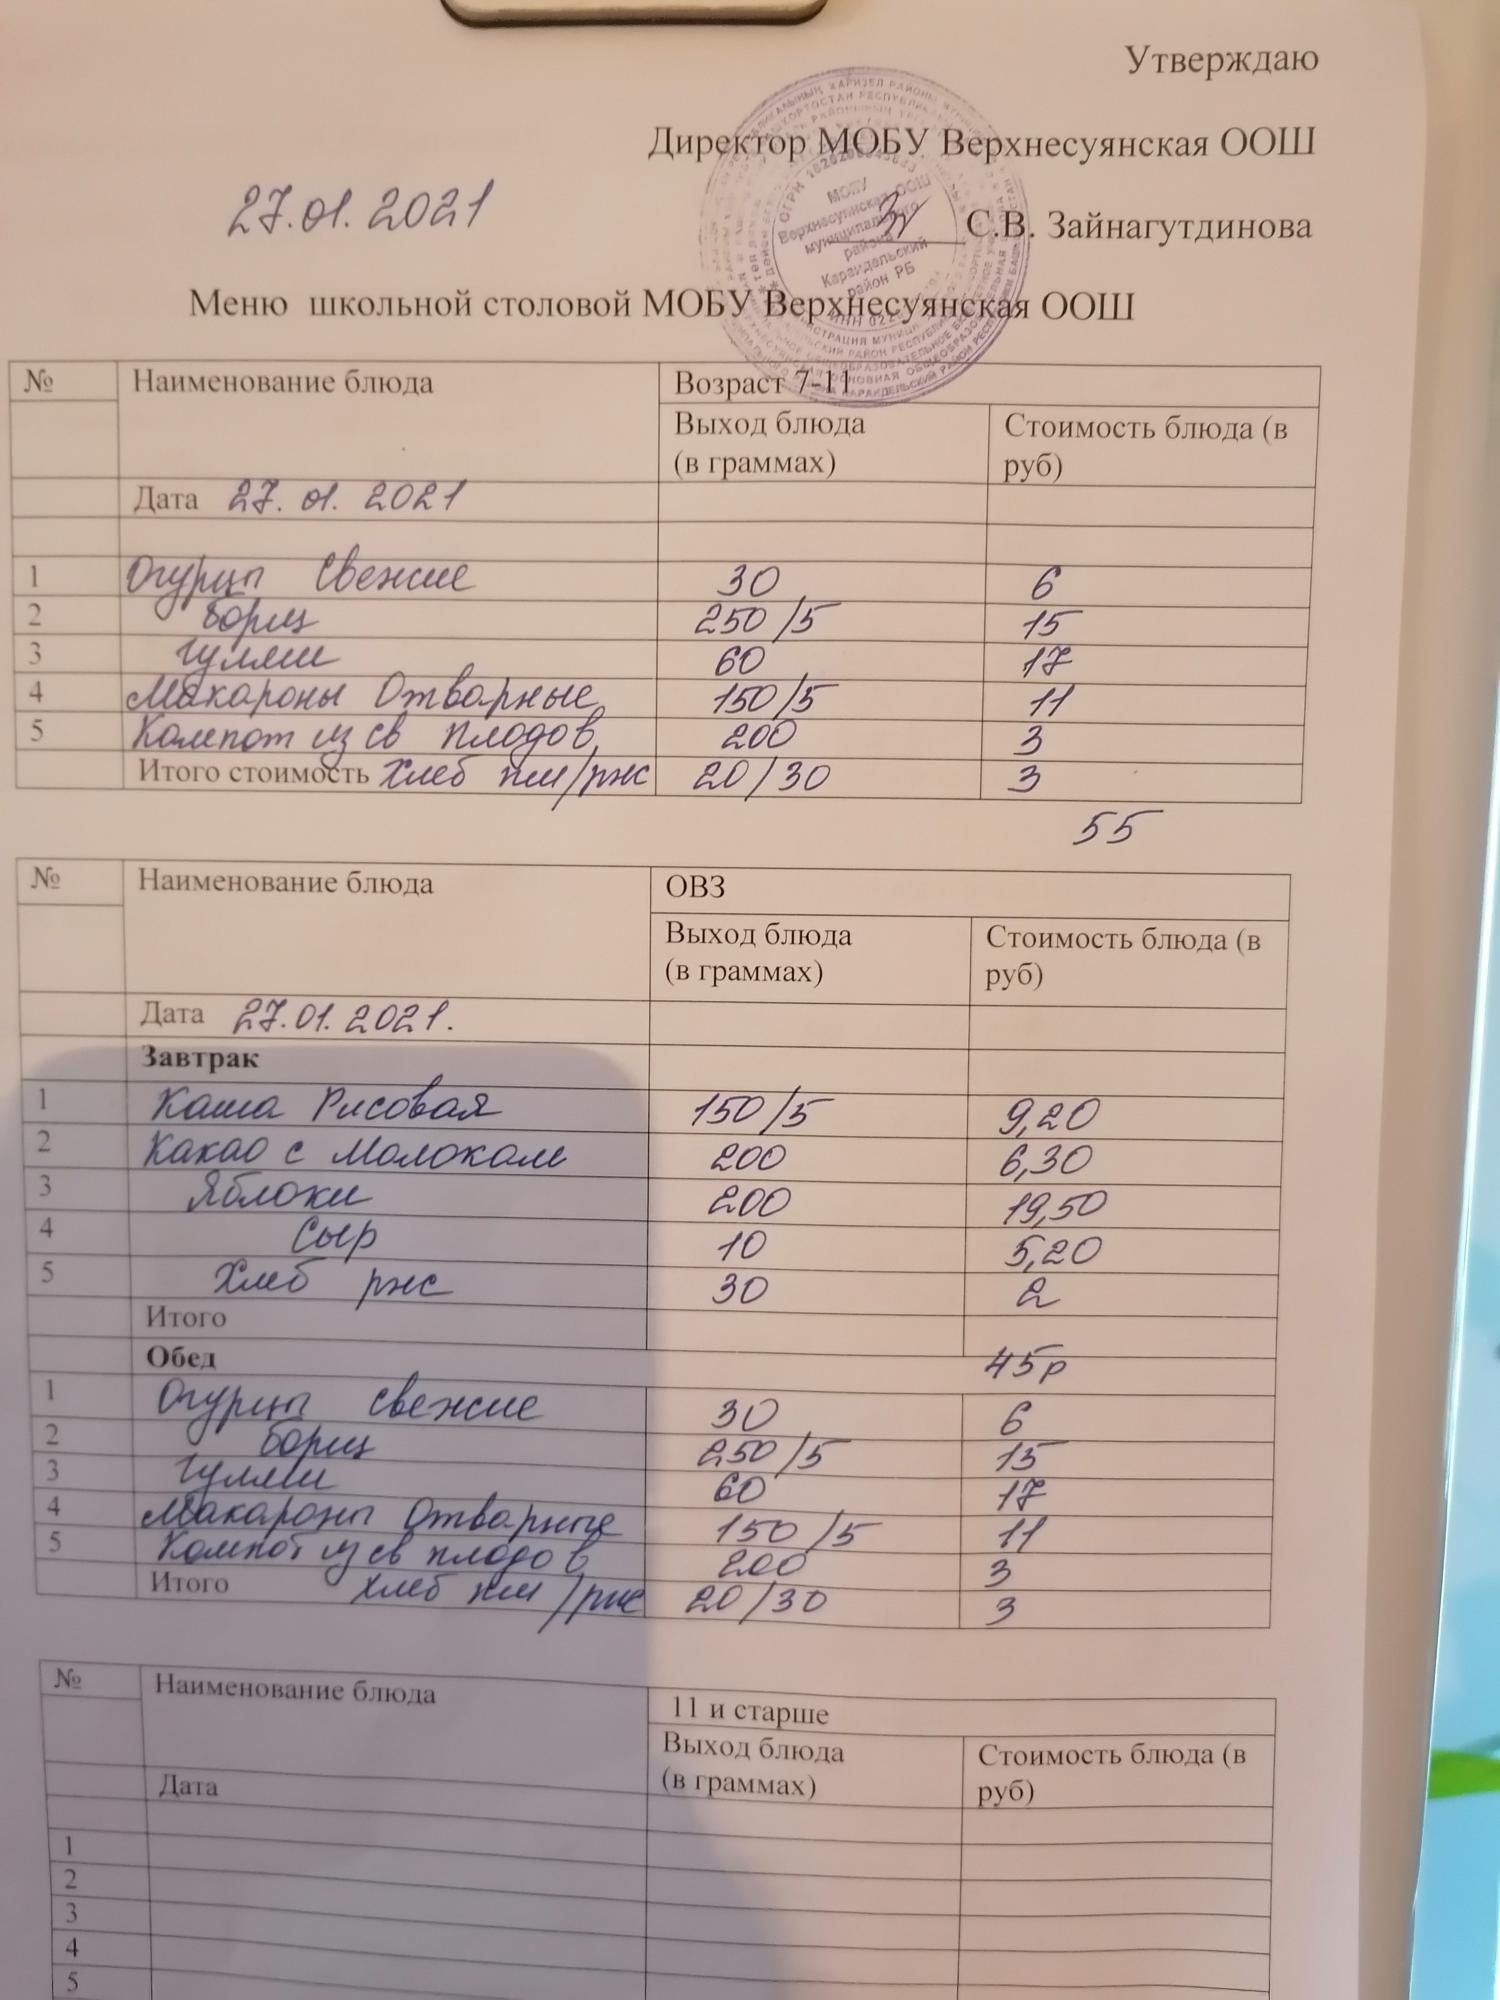 Утверждаю
Директор МОБУ Верхнесуянская ООШ
27.01.2021
С.В. Зайнагутдинова
МОБУ
Верхнесуянская ООШ
муниципального
района
Караидельский
район РБ
Меню школьной столовой МОБУ Верхнесуянская ООШ
№ Наименование блюда Возраст 7-11
Выход блюда (в граммах) Стоимость блюда (в руб)
Дата 27.01.2021
1 Огурцы свежие 30 6
2 борщ 250/5 15
3 гуляш 60 17
4 Макароны Отварные 150/5 11
5 Компот из св плодов 200 3
Итого стоимость Хлеб пш/ржс 20/30 3
55
№ Наименование блюда ОВЗ
Выход блюда (в граммах) Стоимость блюда (в руб)
Дата 27.01.2021.
Завтрак
1 Каша Рисовая 150/5 9,20
2 Какао с Молоком 200 6,30
3 Яблоки 200 19,50
4 Сыр 10 5,20
5 Хлеб ржс 30 2
Итого
Обед 45р
1 Огурцы свежие 30 6
2 борщ 250/5 15
3 гуляш 60 17
4 Макароны Отварные 150/5 11
5 Компот из св плодов 200 3
Итого хлеб пш/ржс 20/30 3
№ Наименование блюда 11 и старше
Выход блюда (в граммах) Стоимость блюда (в руб)
Дата
1
2
3
4
5